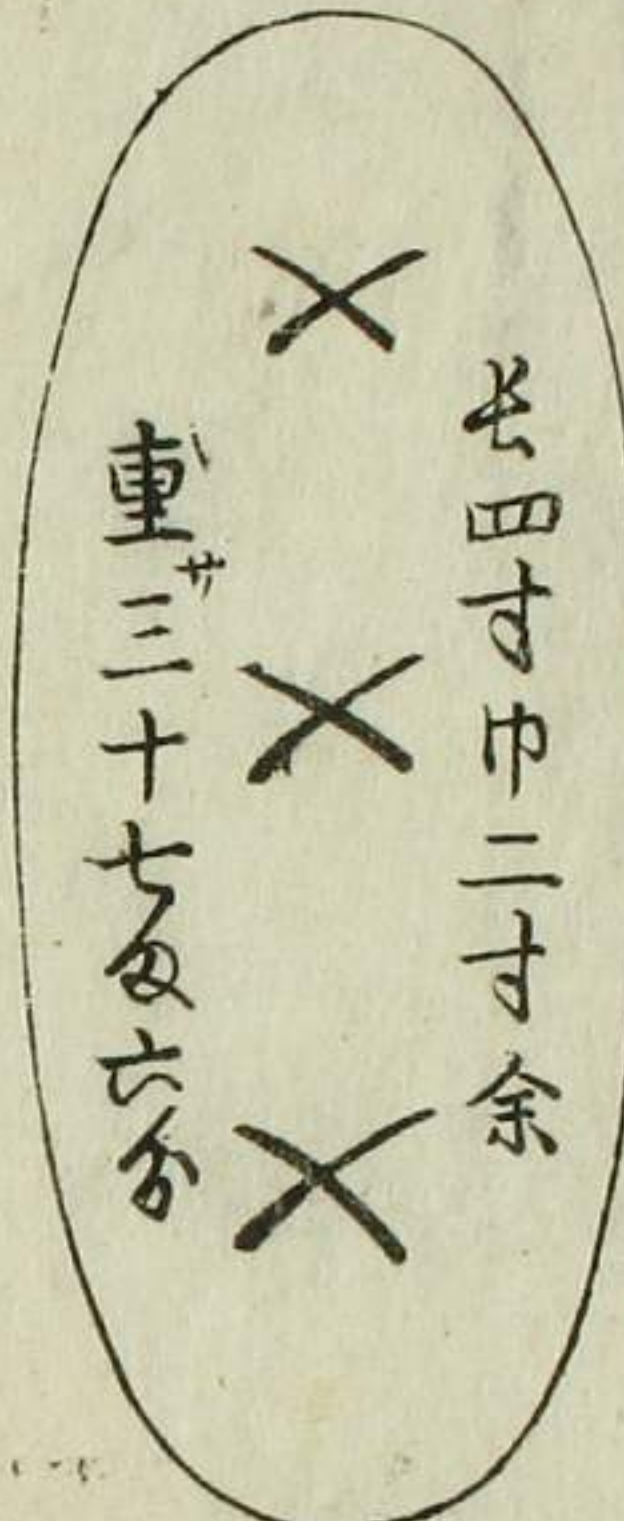 长四寸巾二寸余
重サ三十七匁六分